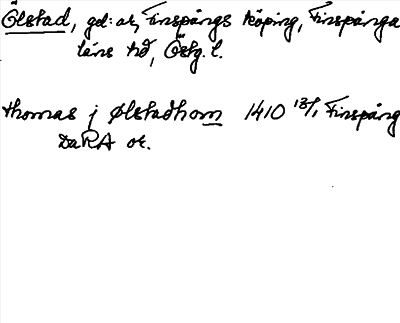 Ölstad, gd: ar, Finspångs köping, Finspånga
läns hd, Östg. l.
thomas j Ølstadhom 1410 13/1 Finspång
DaRA or.